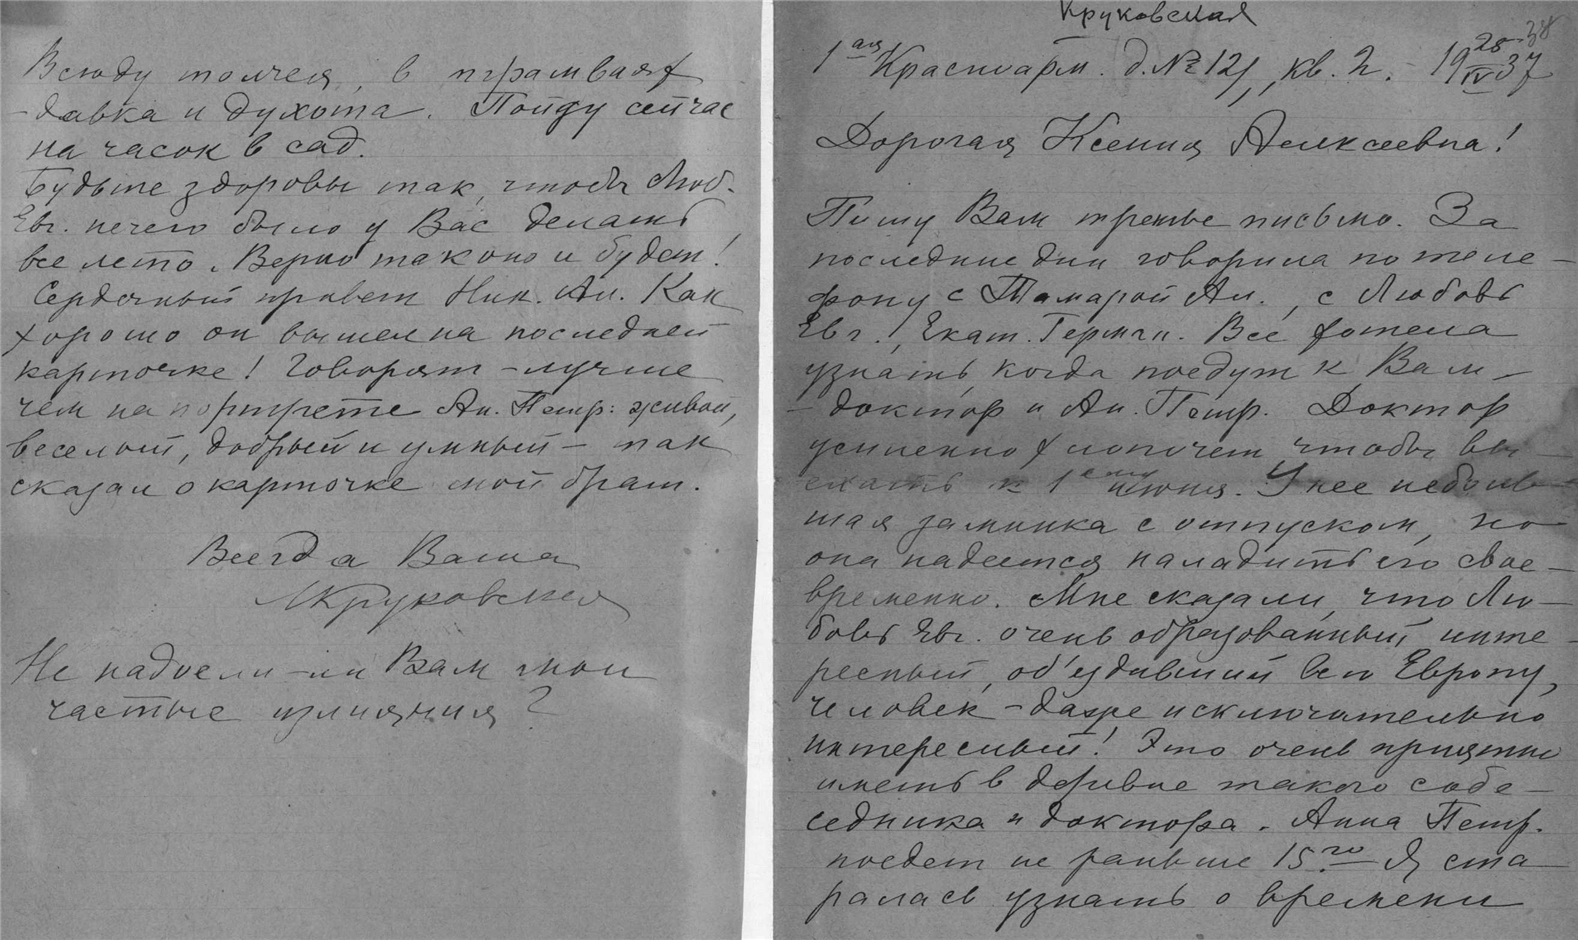 Всюду толчея, в трамваях
- давка и духота. Пойду сейчас
на часок в сад.
Будьте здоровы так, чтобы Люб.
Евг. нечего было у Вас делать
все лето. Верно так оно и будет!
Сердечный привет Ник. Ал. Как
хорошо он вышел на последней
карточке! Говорят - лучше
чем на портрете Ан. Петр: живой,
веселый, добрый и умный - так
сказал о карточке мой брат.
Всегда Ваша
МКруковская
Не надоели-ли Вам мои
частые излияния?
Круковская
38
1ая Красноарм. д. № 12, кв. 2. 19 28/IV 37
Дорогая Ксения Алексеевна!
Пишу Вам третье письмо. За
последние дни говорила по теле-
фону с Тамарой Ал., с Любовь
Евг., Екат. Герм. Все хотела
узнать, когда поедут к Вам -
- доктор и Ан. Петр. Доктор
усиленно хлопочет, чтобы вы-
ехать к 1 июня. У нее неболь-
шая заминка с отпуском, но
она надеется наладить его свое-
временно. Мне сказали, что Лю-
бовь Евг. очень образованный, инте-
ресный, об'ездивший всю Европу,
человек - даже исключительно
интересный! Это очень приятно
иметь в деревне такого собе-
седника и доктора. Анна Петр.
поедет не раньше 15го. Я ста-
ралась узнать о времени